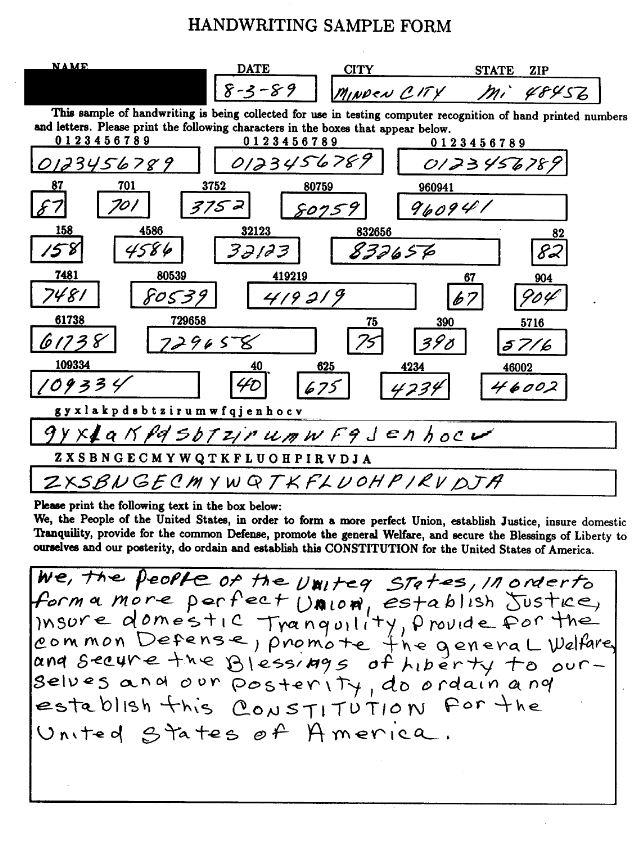 HANDWRITING SAMPLE FORM
NAME DATE CITY STATE ZIP
8-3-89 MINDEN CITY Mi 48456
This sample of handwriting is being collected for use in testing computer recognition of hand printed numbers
and letters. Please print the following characters in the boxes that appear below.
0 1 2 3 4 5 6 7 8 9 0 1 2 3 4 5 6 7 8 9 0 1 2 3 4 5 6 7 8 9
0123456789 0123456789 0123456789
87 701 3752 80759 960941
87 701 3752 80759 960941
158 4586 32123 832656 82
158 4586 32123 832656 82
7481 80539 419219 67 904
7481 80539 419219 67 904
61738 729658 75 390 5716
61738 729658 75 390 5716
109334 40 625 4234 46002
109334 40 675 4234 46002
g y x l a k p d s b t z i r u m w f q j e n h o c v
gyxlakpdsbtzirumwFqJenhocv
Z X S B N G E C M Y W Q T K F L U O H P I R V D J A
ZXSBNGECMYWQTKFLUOHPIRVDJA
Please print the following text in the box below:
We, the People of the United States, in order to form a more perfect Union, establish Justice, insure domestic
Tranquility, provide for the common Defense, promote the general Welfare, and secure the Blessings of Liberty to
ourselves and our posterity, do ordain and establish this CONSTITUTION for the United States of America.
We, the People of the United States, in order to
form a more perfect Union, establish Justice,
insure domestic Tranquility, Provide for the
common Defense, promote the general Welfare,
and secure the Blessings of Liberty to our-
selves and our posterity, do ordain and
establish this CONSTITUTION for the
United States of America.